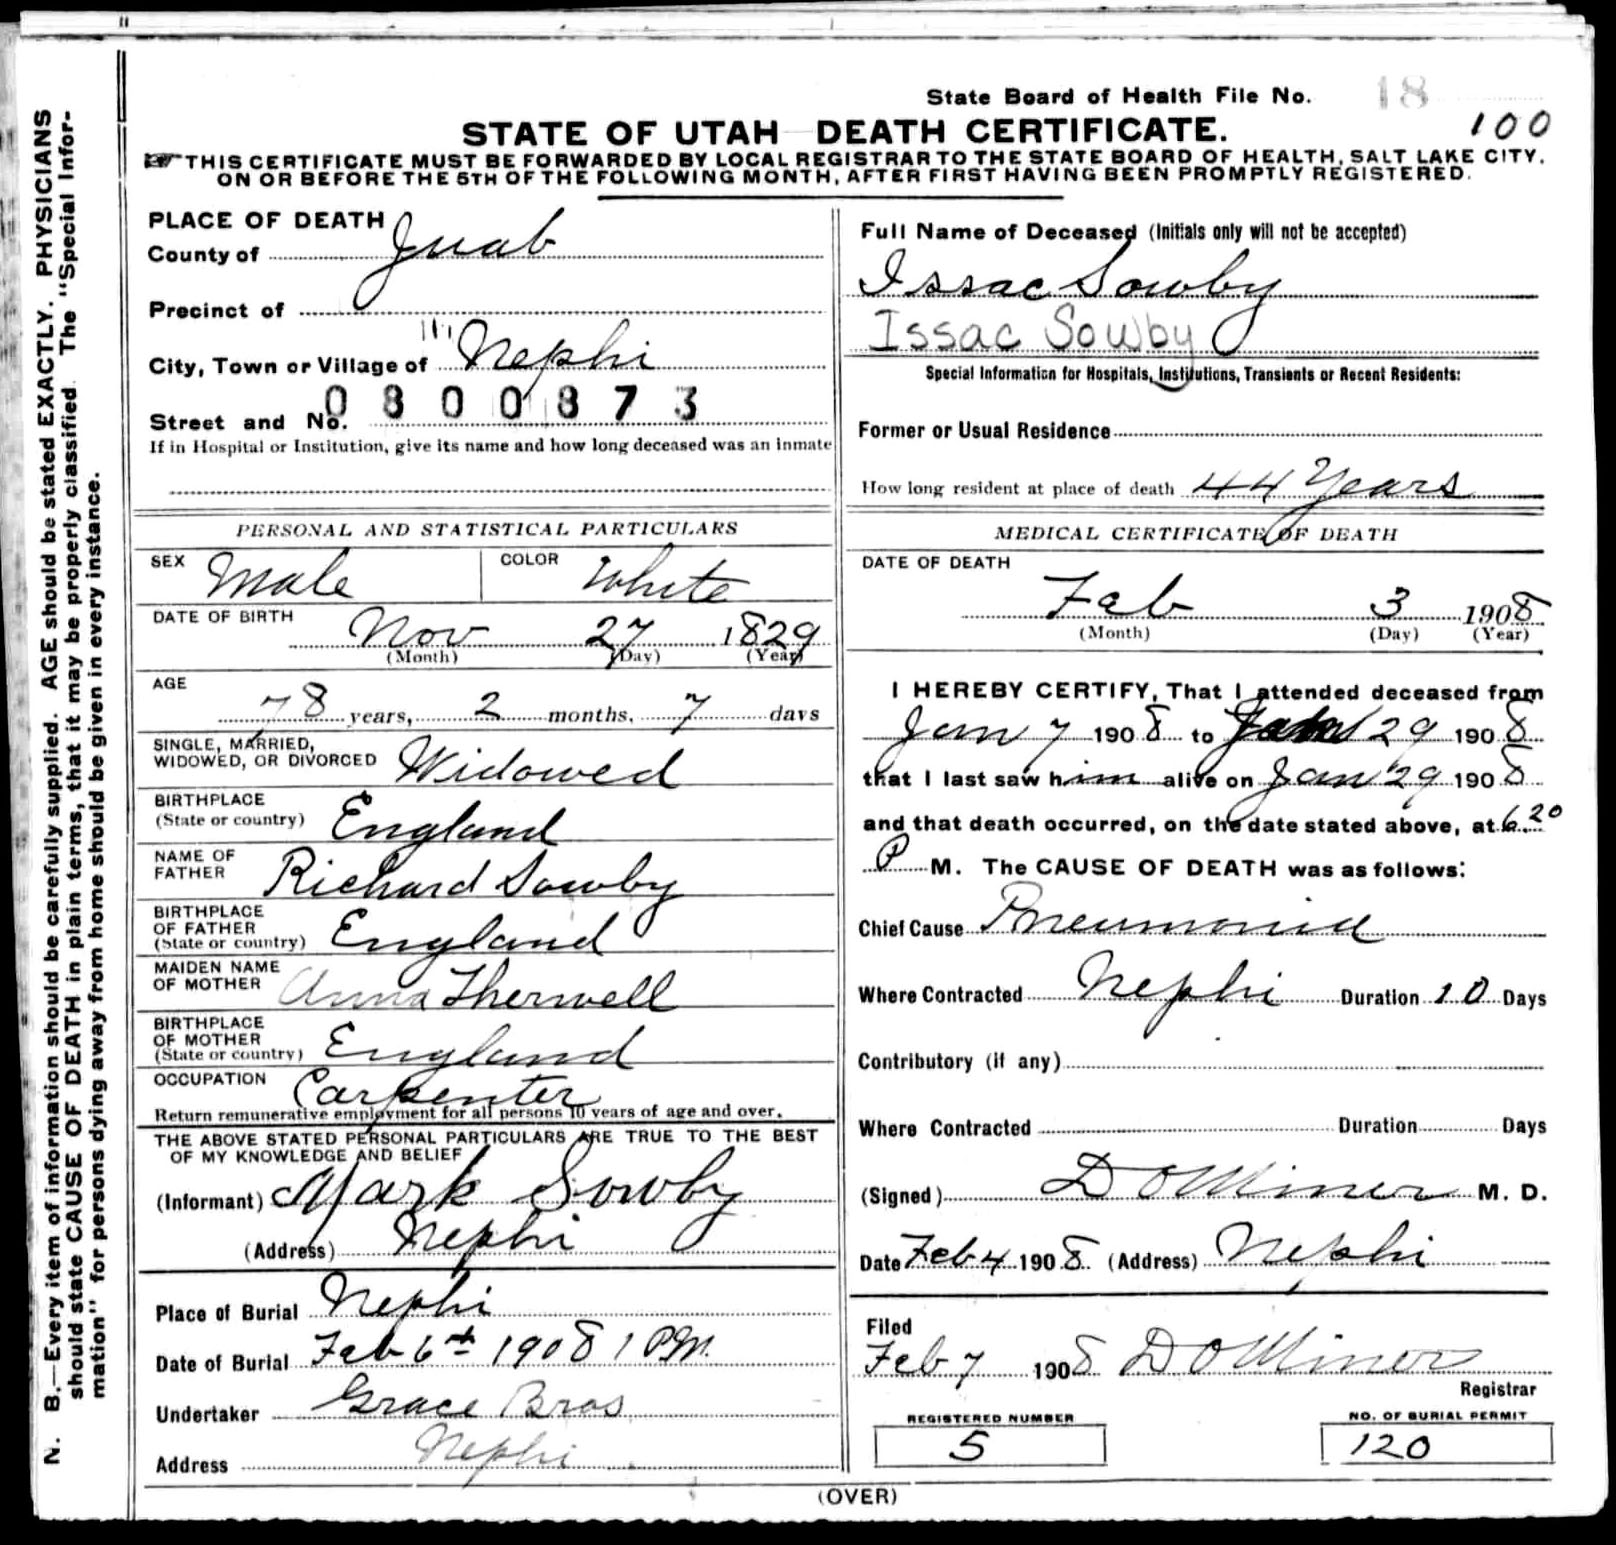 State Board of Health File No. 18
100
STATE OF UTAH DEATH CERTIFICATE.
THIS CERTIFICATE MUST BE FORWARDED BY LOCAL REGISTRAR TO THE STATE BOARD OF HEALTH, SALT LAKE CITY,
ON OR BEFORE THE 5TH OF THE FOLLOWING MONTH, AFTER FIRST HAVING BEEN PROMPTLY REGISTERED.
N. B.—Every item of information should be carefully supplied. AGE should be stated EXACTLY. PHYSICIANS
should state CAUSE OF DEATH in plain terms, that it may be properly classified. The "Special Infor-
mation" for persons dying away from home should be given in every instance.
PLACE OF DEATH
County of Juab
Precinct of
City, Town or Village of Nephi
Street and No. 0800873
If in Hospital or Institution, give its name and how long deceased was an inmate
PERSONAL AND STATISTICAL PARTICULARS
SEX Male COLOR White
DATE OF BIRTH Nov 27 1829
(Month) (Day) (Year)
AGE 78 years, 2 months, 7 days
SINGLE, MARRIED,
WIDOWED, OR DIVORCED Widowed
BIRTHPLACE
(State or country) England
NAME OF
FATHER Richard Sowby
BIRTHPLACE
OF FATHER
(State or country) England
MAIDEN NAME
OF MOTHER Anna Therwell
BIRTHPLACE
OF MOTHER
(State or country) England
OCCUPATION Carpenter
Return remunerative employment for all persons 10 years of age and over.
THE ABOVE STATED PERSONAL PARTICULARS ARE TRUE TO THE BEST
OF MY KNOWLEDGE AND BELIEF
(Informant) Mark Sowby
(Address) Nephi
Place of Burial Nephi
Date of Burial Feb 6th 1908 1 P.M.
Undertaker Grace Bros
Address Nephi
Full Name of Deceased (Initials only will not be accepted)
Issac Sowby
Issac Sowby
Special Information for Hospitals, Institutions, Transients or Recent Residents:
Former or Usual Residence
How long resident at place of death 44 Years
MEDICAL CERTIFICATE OF DEATH
DATE OF DEATH
Feb 3 1908
(Month) (Day) (Year)
I HEREBY CERTIFY, That I attended deceased from
Jan 7 1908 to Jan 29 1908
that I last saw him alive on Jan 29 1908
and that death occurred, on the date stated above, at 6.20
P M. The CAUSE OF DEATH was as follows:
Chief Cause Pneumonia
Where Contracted Nephi Duration 10 Days
Contributory (if any)
Where Contracted Duration Days
(Signed) D O Miner M. D.
Date Feb 4 1908 (Address) Nephi
Filed
Feb 7 1908 D O Miner
Registrar
REGISTERED NUMBER
5
NO. OF BURIAL PERMIT
120
(OVER)